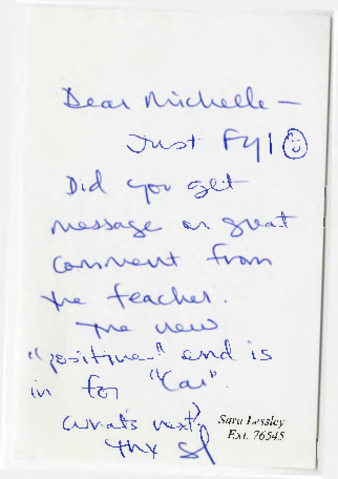 Dear Michelle —
Just FYI
Did you get
message or great
comment from
the teacher.
The new
"positive" end is
in for "Car".
What's next?
Thx SL
Sara Lessley
Ext. 76545